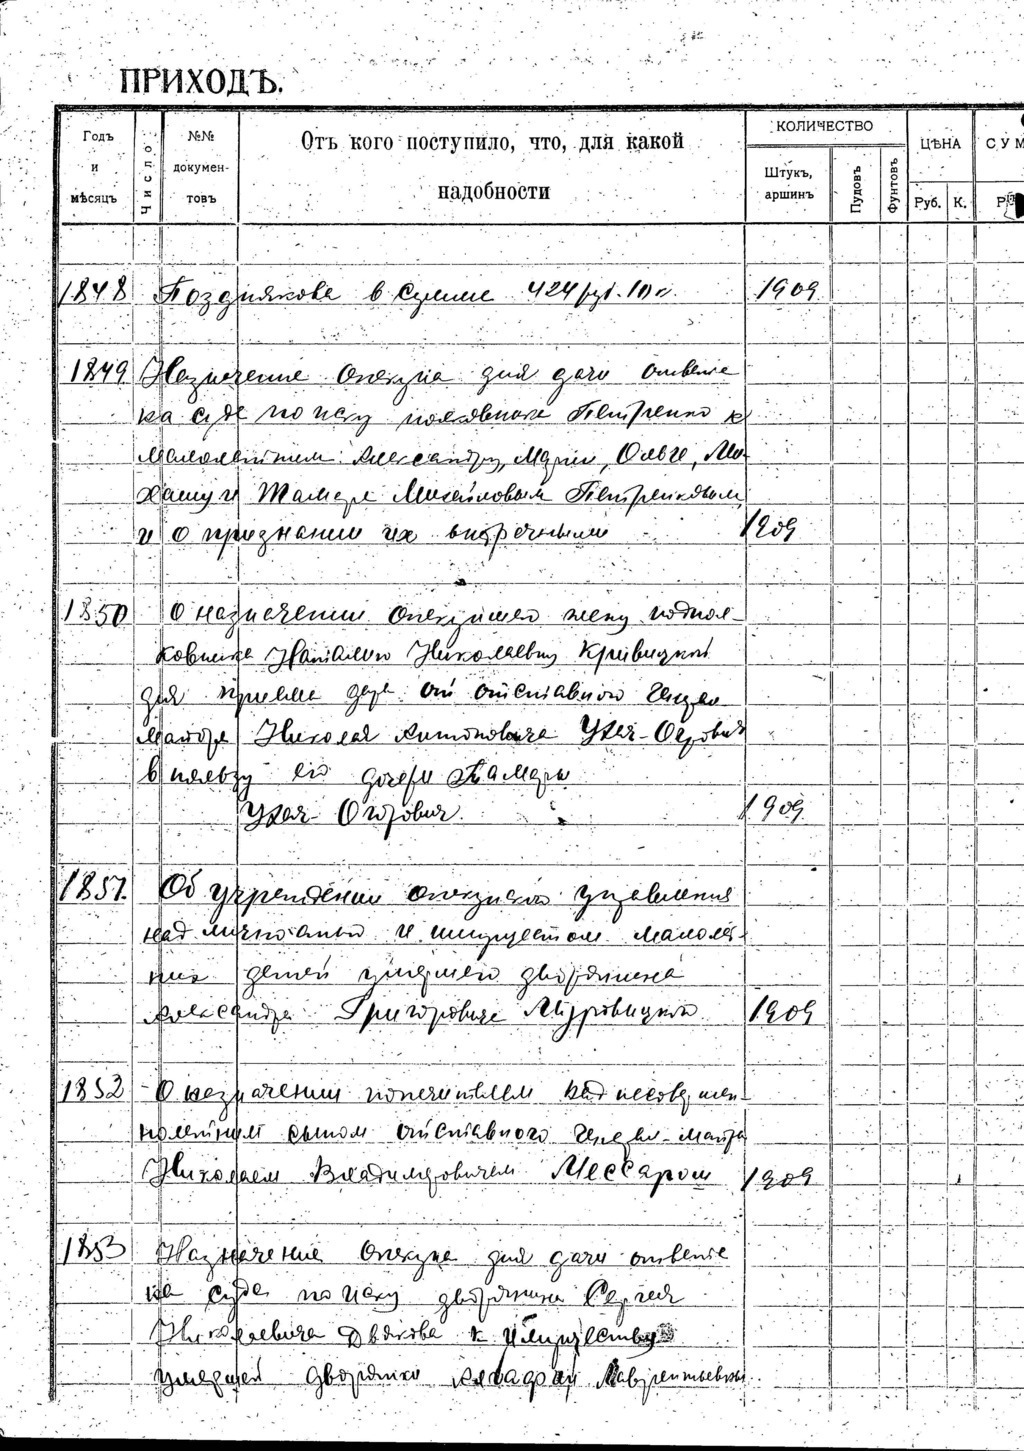 ПРИХОДЪ.
Годъ и мѣсяцъ
Число
№№ документовъ
Отъ кого поступило, что, для какой надобности
КОЛИЧЕСТВО
Штукъ, аршинъ
Пудовъ
Фунтовъ
ЦѢНА
Руб. К.
СУМ
Р
1848 Позднякова в сумме 424 руб. 10 к. 1909
1849 Назначение опекуна для дачи ответа
на суде по иску полковника Петренко к
малолетним: Александру, Марии, Ольге, Ми-
хаилу и Тамаре Михайловым Петренковым
и о признании их внебрачными 1909
1850 О назначении опекуншею жену подпол-
ковника Наталию Николаевну Кривицкой
для приема дара от отставного генерал
майора Николая Антоновича Ухач-Огорович
в пользу его дочери Тамары
Ухач-Огорович. 1909
1851. Об учреждении опекунского управления
над личностью и имуществом малолет-
них детей умершего дворянина
Александра Григоровича Мировицкого 1909
1852 О назначении попечителем над несовершен-
нолетним сыном отставного генерал-майора
Николаем Владимировичем Мессарош 1909
1853 Назначение опекуна для дачи ответа
на суде по иску дворянина Сергея
Николаевича Дьякова к имуществу
умершей дворянки Лаврентьевны